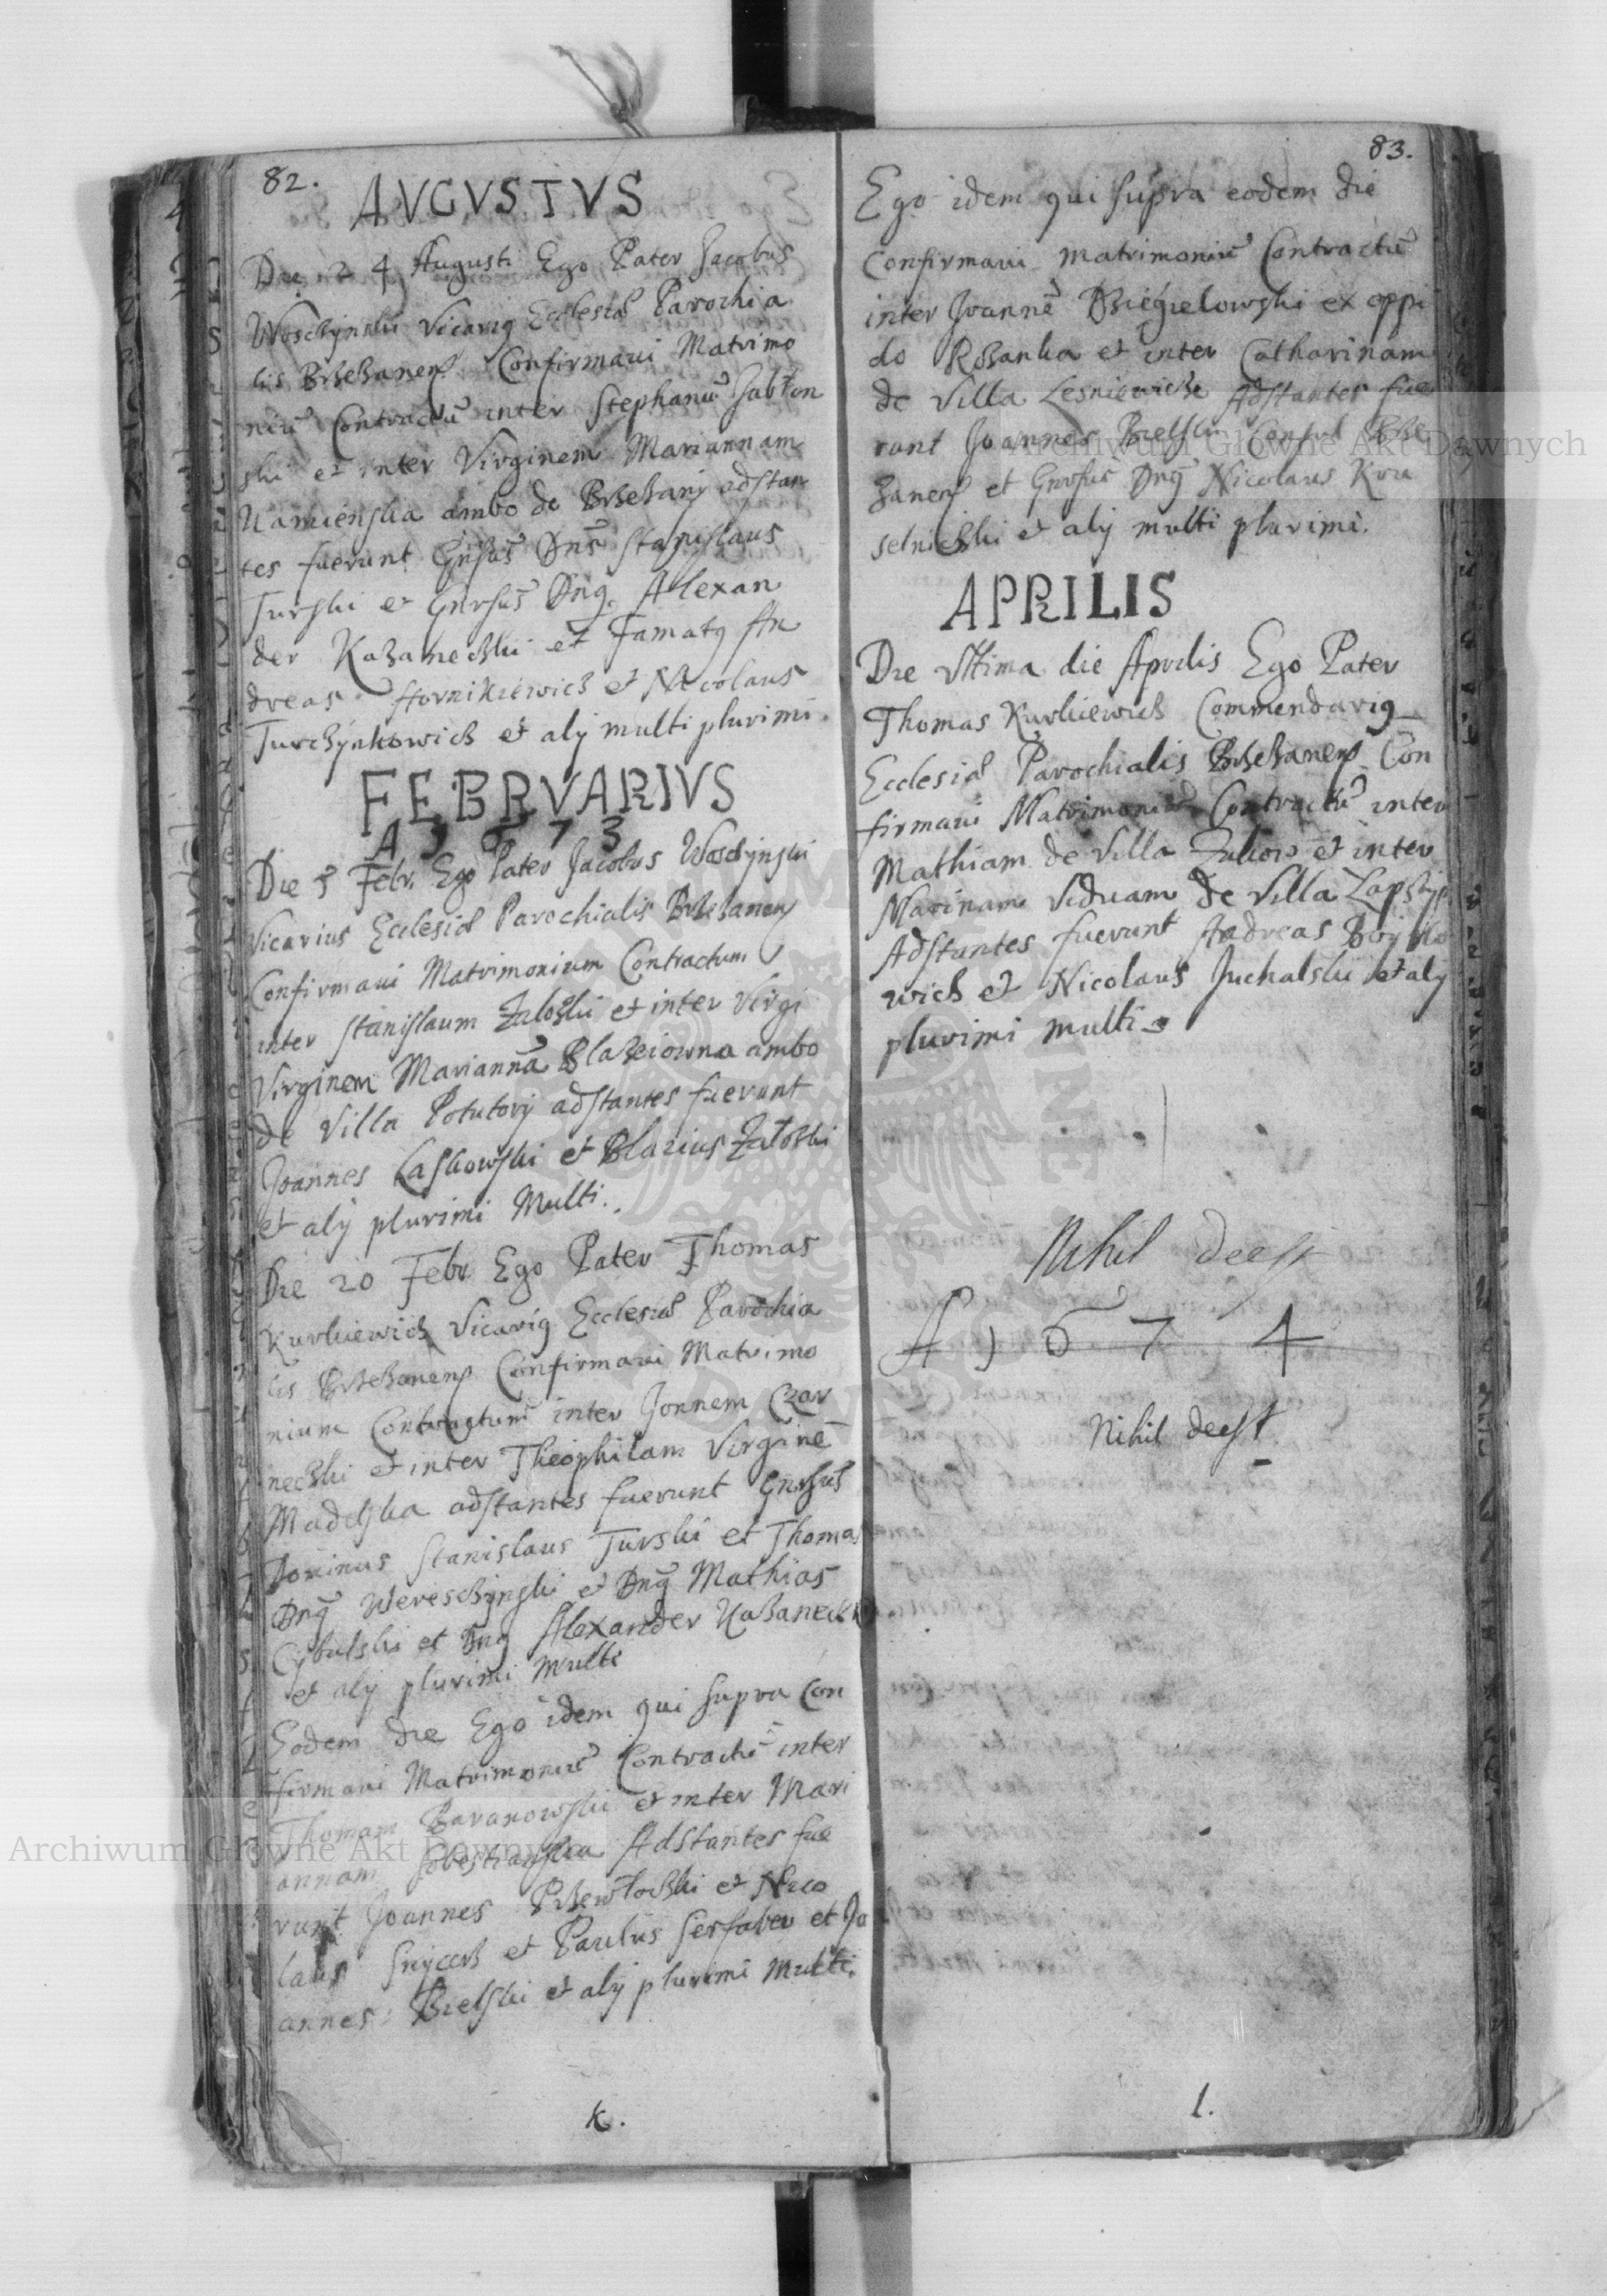 82.
AVGVSTVS
Die 24 Augusti Ego Pater Jacobus
Woschÿnski Vicariꝰ Ecclesiæ Parochia
lis Brzezanens Confirmaui Matrimo
niũ Contractũ inter Stephanũ Jabłon
ski et inter Virginem Mariannam
Kamienska ambo de Brzezanÿ adstan
tes fuerunt Gnrsus Dns Stanislaus
Turski et Gnrsus Dnꝰ Alexan
der Kazaneczki et Famatꝰ An
dreas Hornikiewicz et Nicolaus
Turczÿnkowicz et alÿ multi plurimi.
FEBRVARIVS
A 1 6 7 3
Die 5 Febr. Ego Pater Jacobus Woschÿnski
Vicarius Ecclesiæ Parochialis Brzezanens
Confirmaui Matrimonium Contractum
inter Stanislaum Zaloski et inter Virgi
Virginem Mariannã Blazeiowna ambo
de Villa Potutorÿ adstantes fuerunt
Joannes Laskowski et Blazius Załoski
et alÿ plurimi Multi.
Die 20 Febr Ego Pater Thomas
Kurkiewicz Vicariꝰ Ecclesiæ Parochia
lis Brzezanens Confirmaui Matrimo
nium Contractum inter Jonnem Czar
neczki et inter Theophilam Virginẽ
Madelska adstantes fuerunt Gnrsus
Dominus Stanislaus Turski et Thomas
Dnꝰ Wereschÿnski et Dnꝰ Mathias
Cÿbulski et Dnꝰ Alexander Kazaneczki
et alÿ plurimi Multi
Eodem die Ego idem qui supra Con
firmaui Matrimoniũ Contractũ inter
Thomam Baranowski et inter Mari
annam Adstantes fue
runt Joannes Przewłoczki et Nico
laus Snÿcerz et Paulus Serfaber et Jo
annes Bielski et alÿ plurimi Multi.
K.
83.
Ego idem qui supra eodem die
Confirmaui Matrimoniũ Contractũ
inter Joannẽ Dziegielowski ex oppi
do Rozanka et inter Catharinam
de Villa Lesniewicze Adstantes fue
runt Joannes Bielski Consul Brze
zanens et Gnrsus Dnꝰ Nicolaus Kra
selniczki et alÿ multi plurimi.
APRILIS
Die Vltima die Aprilis Ego Pater
Thomas Kurkiewicz Commendariꝰ
Ecclesiæ Parochialis Brzezanens Con
firmaui Matrimoniũ Contractũ inter
Mathiam de Villa Zukow et inter
Marinam Viduam de Villa Lapszÿn
Adstantes fuerunt Andreas
wicz et Nicolaus Juchalski et alÿ
plurimi multi
Nihil deest
A 1 6 7 4
Nihil deest
l.
Archiwum Główne Akt Dawnych
Archiwum Główne Akt Dawnych